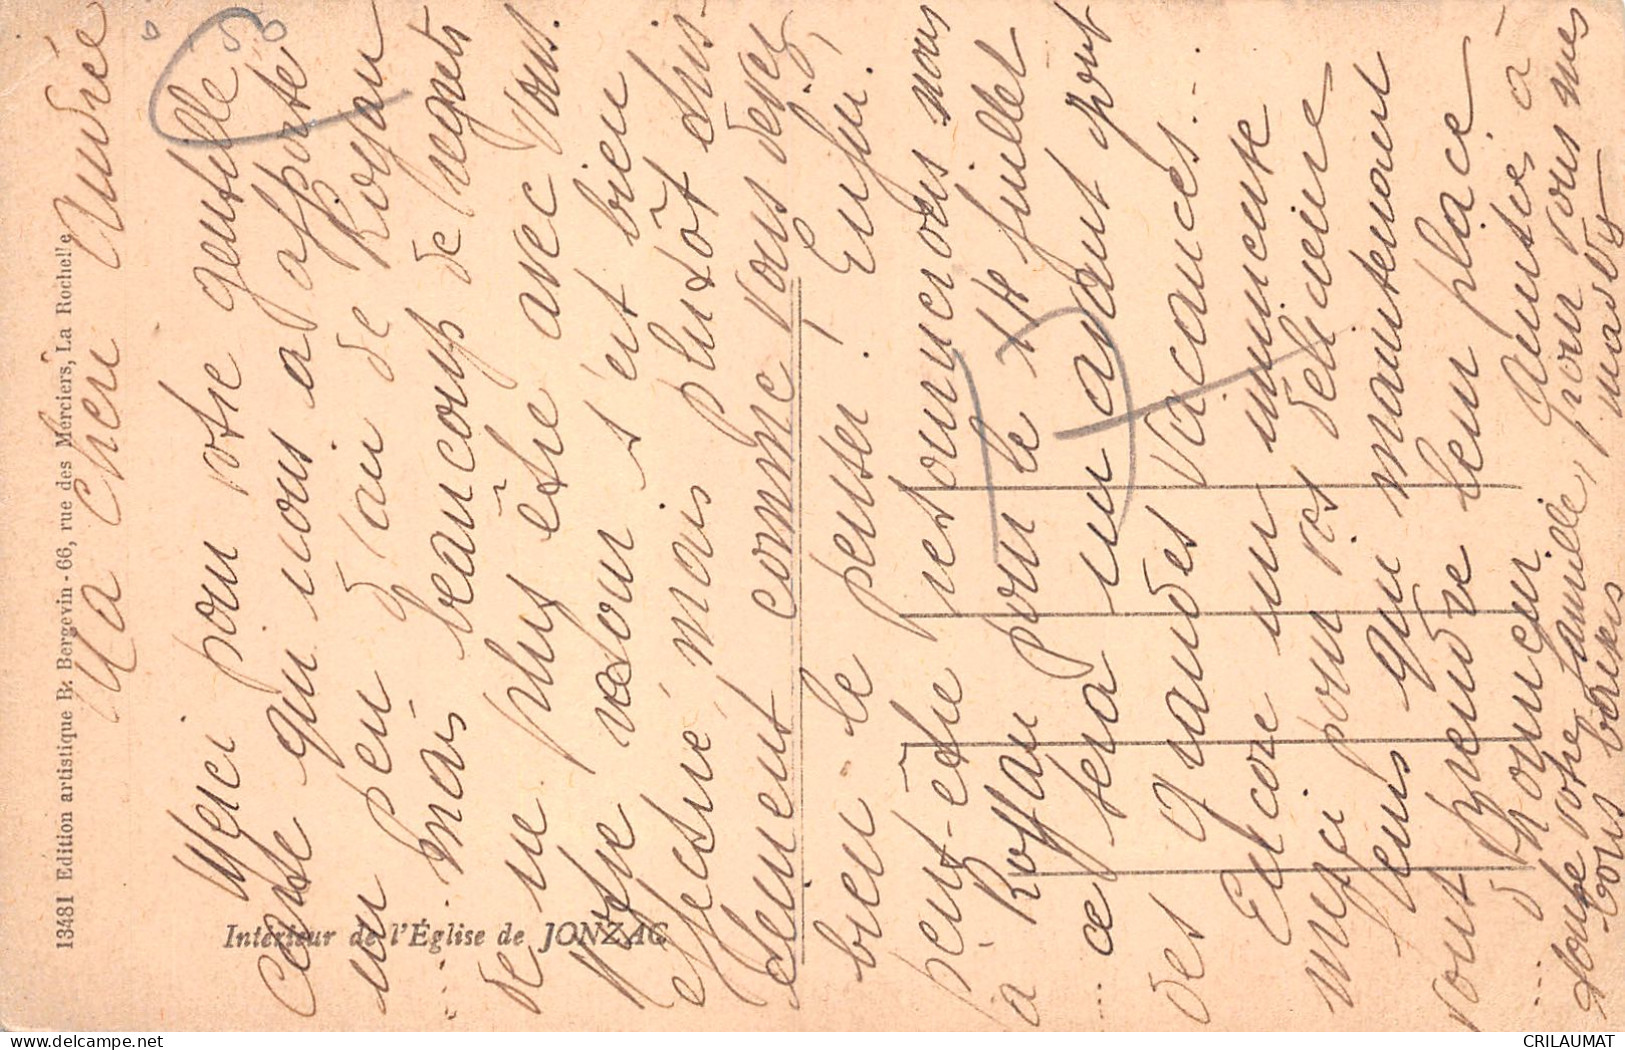 13481 Edition artistique R. Bergevin - 66, rue des Merciers, La Rochelle
Intérieur de l'Église de JONZAC
Ma chère Andrée
Merci pour votre gentille
carte qui nous a apporté
un peu d'air de Royan
... mais beaucoup de regrets
de ne plus être avec vous.
Notre retour s'est bien
effectué, mais plutôt tris-
tement comme vous devez
bien le penser ! Enfin.
peut-être retournerons nous
à Royan pour le 14 juillet
... ce sera un avant goût
des grandes vacances...
Encore un immense
merci pour vos
fleurs qui maintenant
vont prendre leur place
... d'honneur. Amitiés à
toute votre famille, pour vous mes
bons baisers
CRILAUMAT